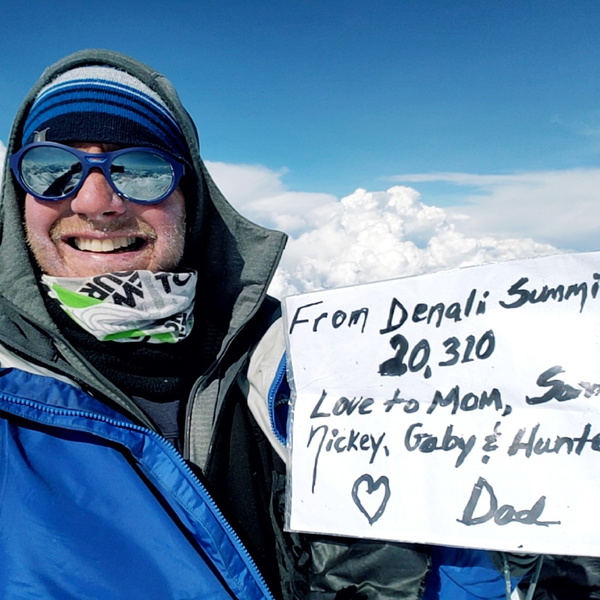 From Denali Summi
20,310
Love to Mom,
Nickey, Gaby & Hunte
Dad